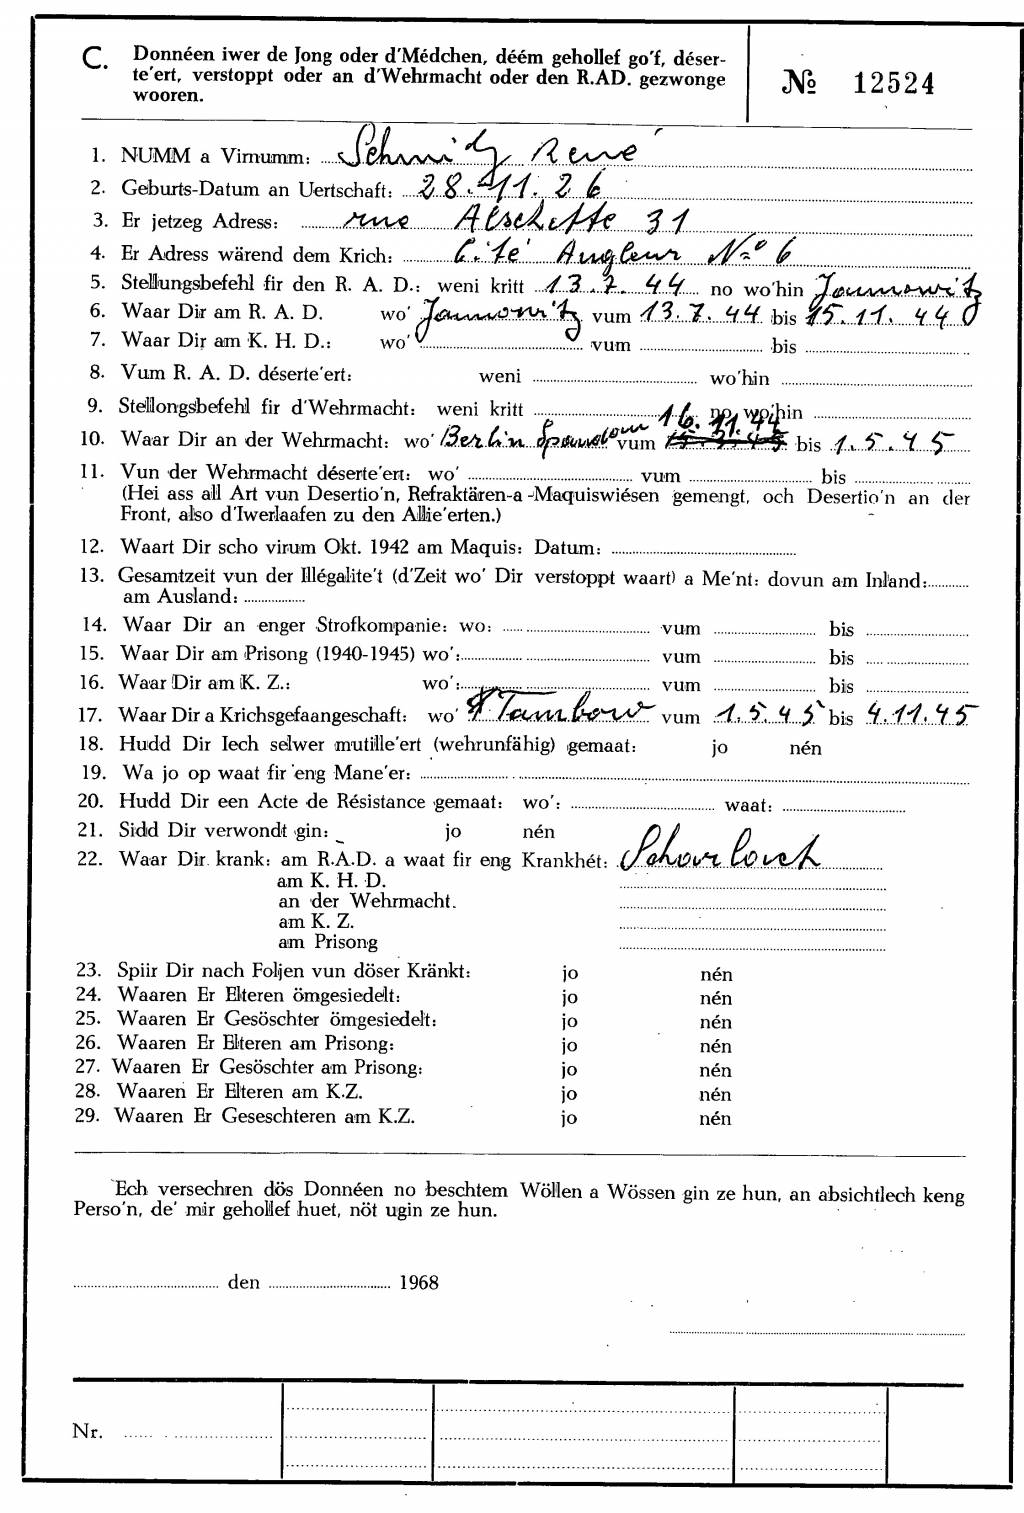 C. Donnéen iwer de Jong oder d'Médchen, déém gehollef go'f, déser-
te'ert, verstoppt oder an d'Wehrmacht oder den R.AD. gezwonge
wooren.
№ 12524
1. NUMM a Virnumm: Schmitz René
2. Geburts-Datum an Uertschaft: 28.11.26
3. Er jetzeg Adress: rue Alschette 31
4. Er Adress wärend dem Krich: Cité Angleur No 6
5. Stellungsbefehl fir den R. A. D.: weni kritt 13.7.44 no wo'hin Jaunowitz
6. Waar Dir am R. A. D. wo' Jannowitz vum 13.7.44 bis 15.11.44
7. Waar Dir am K. H. D.: wo' vum bis
8. Vum R. A. D. déserte'ert: weni wo'hin
9. Stellongsbefehl fir d'Wehrmacht: weni kritt no wo'hin
10. Waar Dir an der Wehrmacht: wo' Berlin Spandau vum 16.11.44 bis 1.5.45
11. Vun der Wehrmacht déserte'ert: wo' vum bis
(Hei ass all Art vun Desertio'n, Refraktären-a -Maquiswiésen gemengt, och Desertio'n an der
Front, also d'Iwerlaafen zu den Allie'erten.)
12. Waart Dir scho virum Okt. 1942 am Maquis: Datum:
13. Gesamtzeit vun der Illégalite't (d'Zeit wo' Dir verstoppt waart) a Me'nt: dovun am Inland:
am Ausland:
14. Waar Dir an enger Strofkompanie: wo: vum bis
15. Waar Dir am Prisong (1940-1945) wo': vum bis
16. Waar Dir am K. Z.: wo': vum bis
17. Waar Dir a Krichsgefaangeschaft: wo' Tambow vum 1.5.45 bis 4.11.45
18. Hudd Dir Iech selwer mutille'ert (wehrunfähig) gemaat: jo nén
19. Wa jo op waat fir eng Mane'er:
20. Hudd Dir een Acte de Résistance gemaat: wo': waat:
21. Sidd Dir verwondt gin: jo nén
22. Waar Dir krank: am R.A.D. a waat fir eng Krankhét: Scharlach
am K. H. D.
an der Wehrmacht.
am K. Z.
am Prisong
23. Spiir Dir nach Foljen vun döser Kränkt: jo nén
24. Waaren Er Elteren ömgesiedelt: jo nén
25. Waaren Er Gesöschter ömgesiedelt: jo nén
26. Waaren Er Elteren am Prisong: jo nén
27. Waaren Er Gesöschter am Prisong: jo nén
28. Waaren Er Elteren am K.Z. jo nén
29. Waaren Er Geseschteren am K.Z. jo nén
Ech versechren dös Donnéen no beschtem Wöllen a Wössen gin ze hun, an absichtlech keng
Perso'n, de' mir gehollef huet, nöt ugin ze hun.
den 1968
Nr.